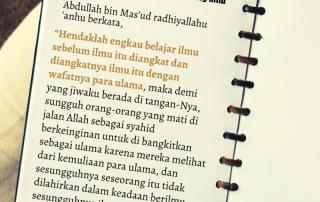 Abdullah bin Mas'ud radhiyallahu
'anhu berkata,
"Hendaklah engkau belajar ilmu
sebelum ilmu itu diangkat dan
diangkatnya ilmu itu dengan
wafatnya para ulama, maka demi
yang jiwaku berada di tangan-Nya,
sungguh orang-orang yang mati di
jalan Allah sebagai syahid
berkeinginan untuk di bangkitkan
sebagai ulama karena mereka melihat
dari kemuliaan para ulama, dan
sesungguhnya seseorang itu tidak
dilahirkan dalam keadaan berilmu